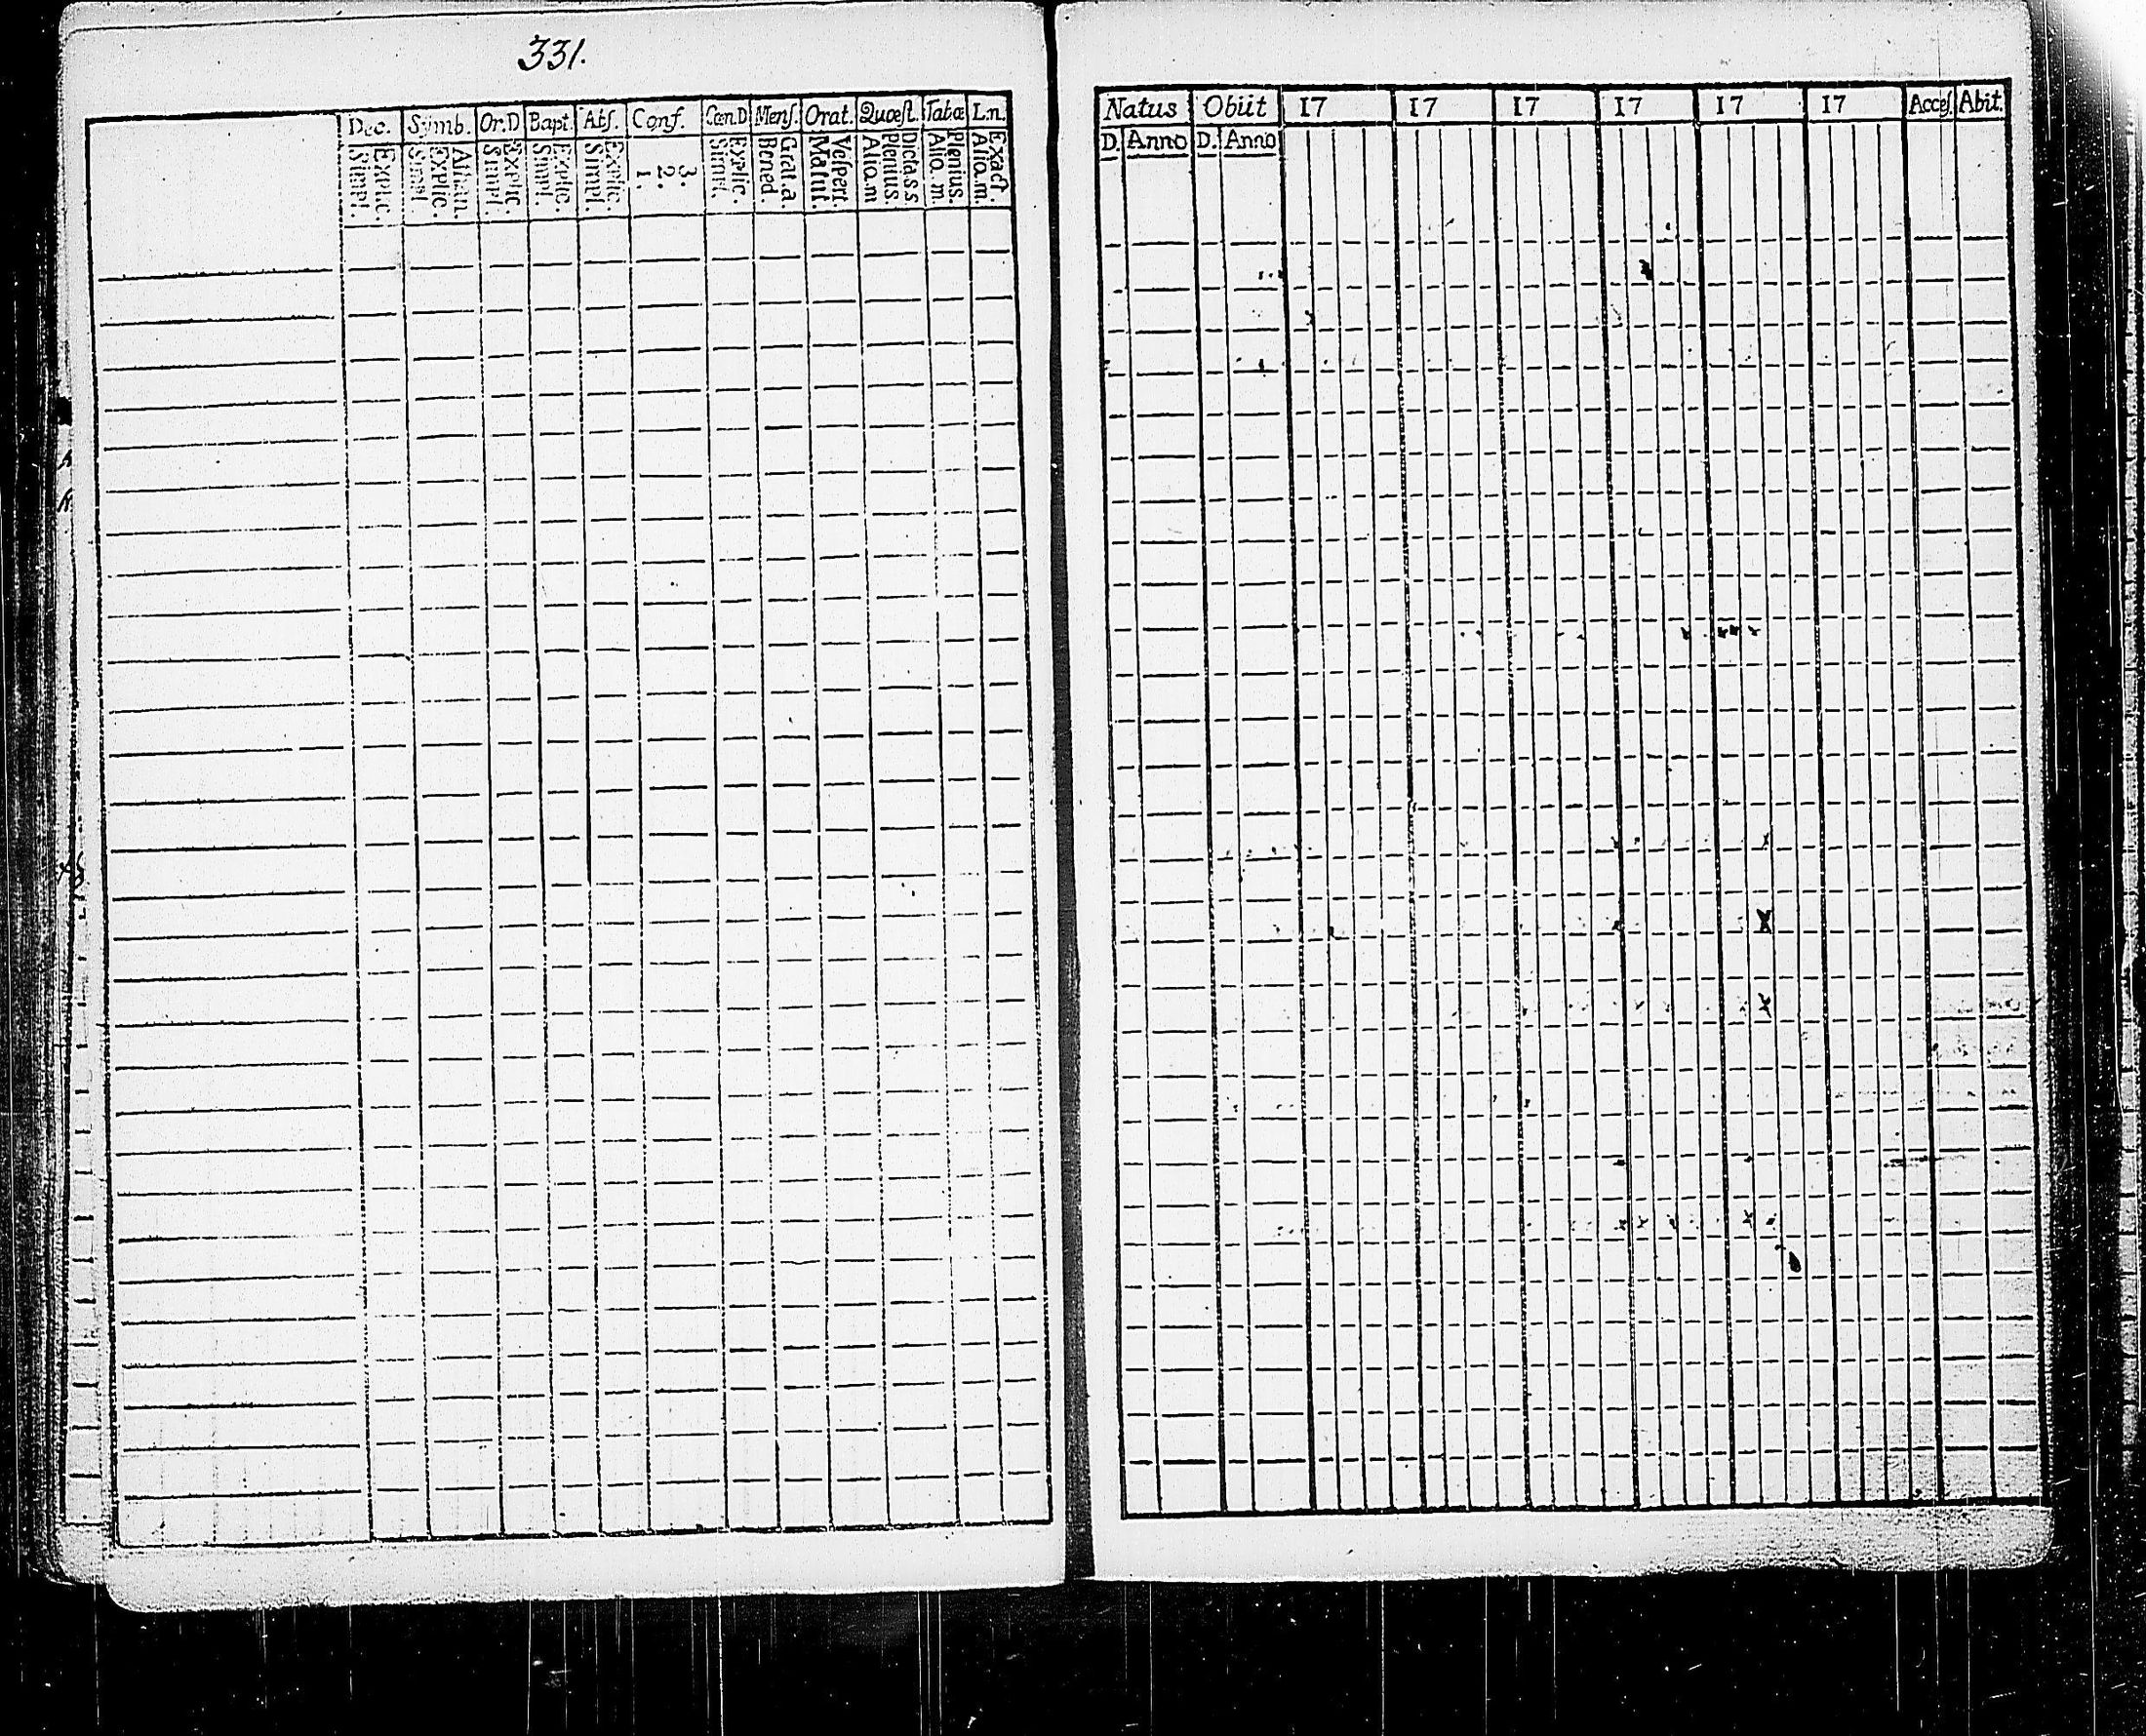 331.
Dec. Symb. Or.D Bapt. Abſ. Conf. Cœn.D Menſ. Orat. Quæſt. Tabæ L.n.
Simpl. Explic. Simpl. Explic. Athan. Simpl. Explic. Simpl. Explic. Simpl. Explic. 1. 2. 3. Simpl. Explic. Bened. Grat.a Matut. Veſpert. Alio.m Plenius. Dicta.s.s Alio.m. Plenius. Alio.m. Exact.
Natus Obiit 17 17 17 17 17 17 Acceſ. Abit.
D. Anno D. Anno